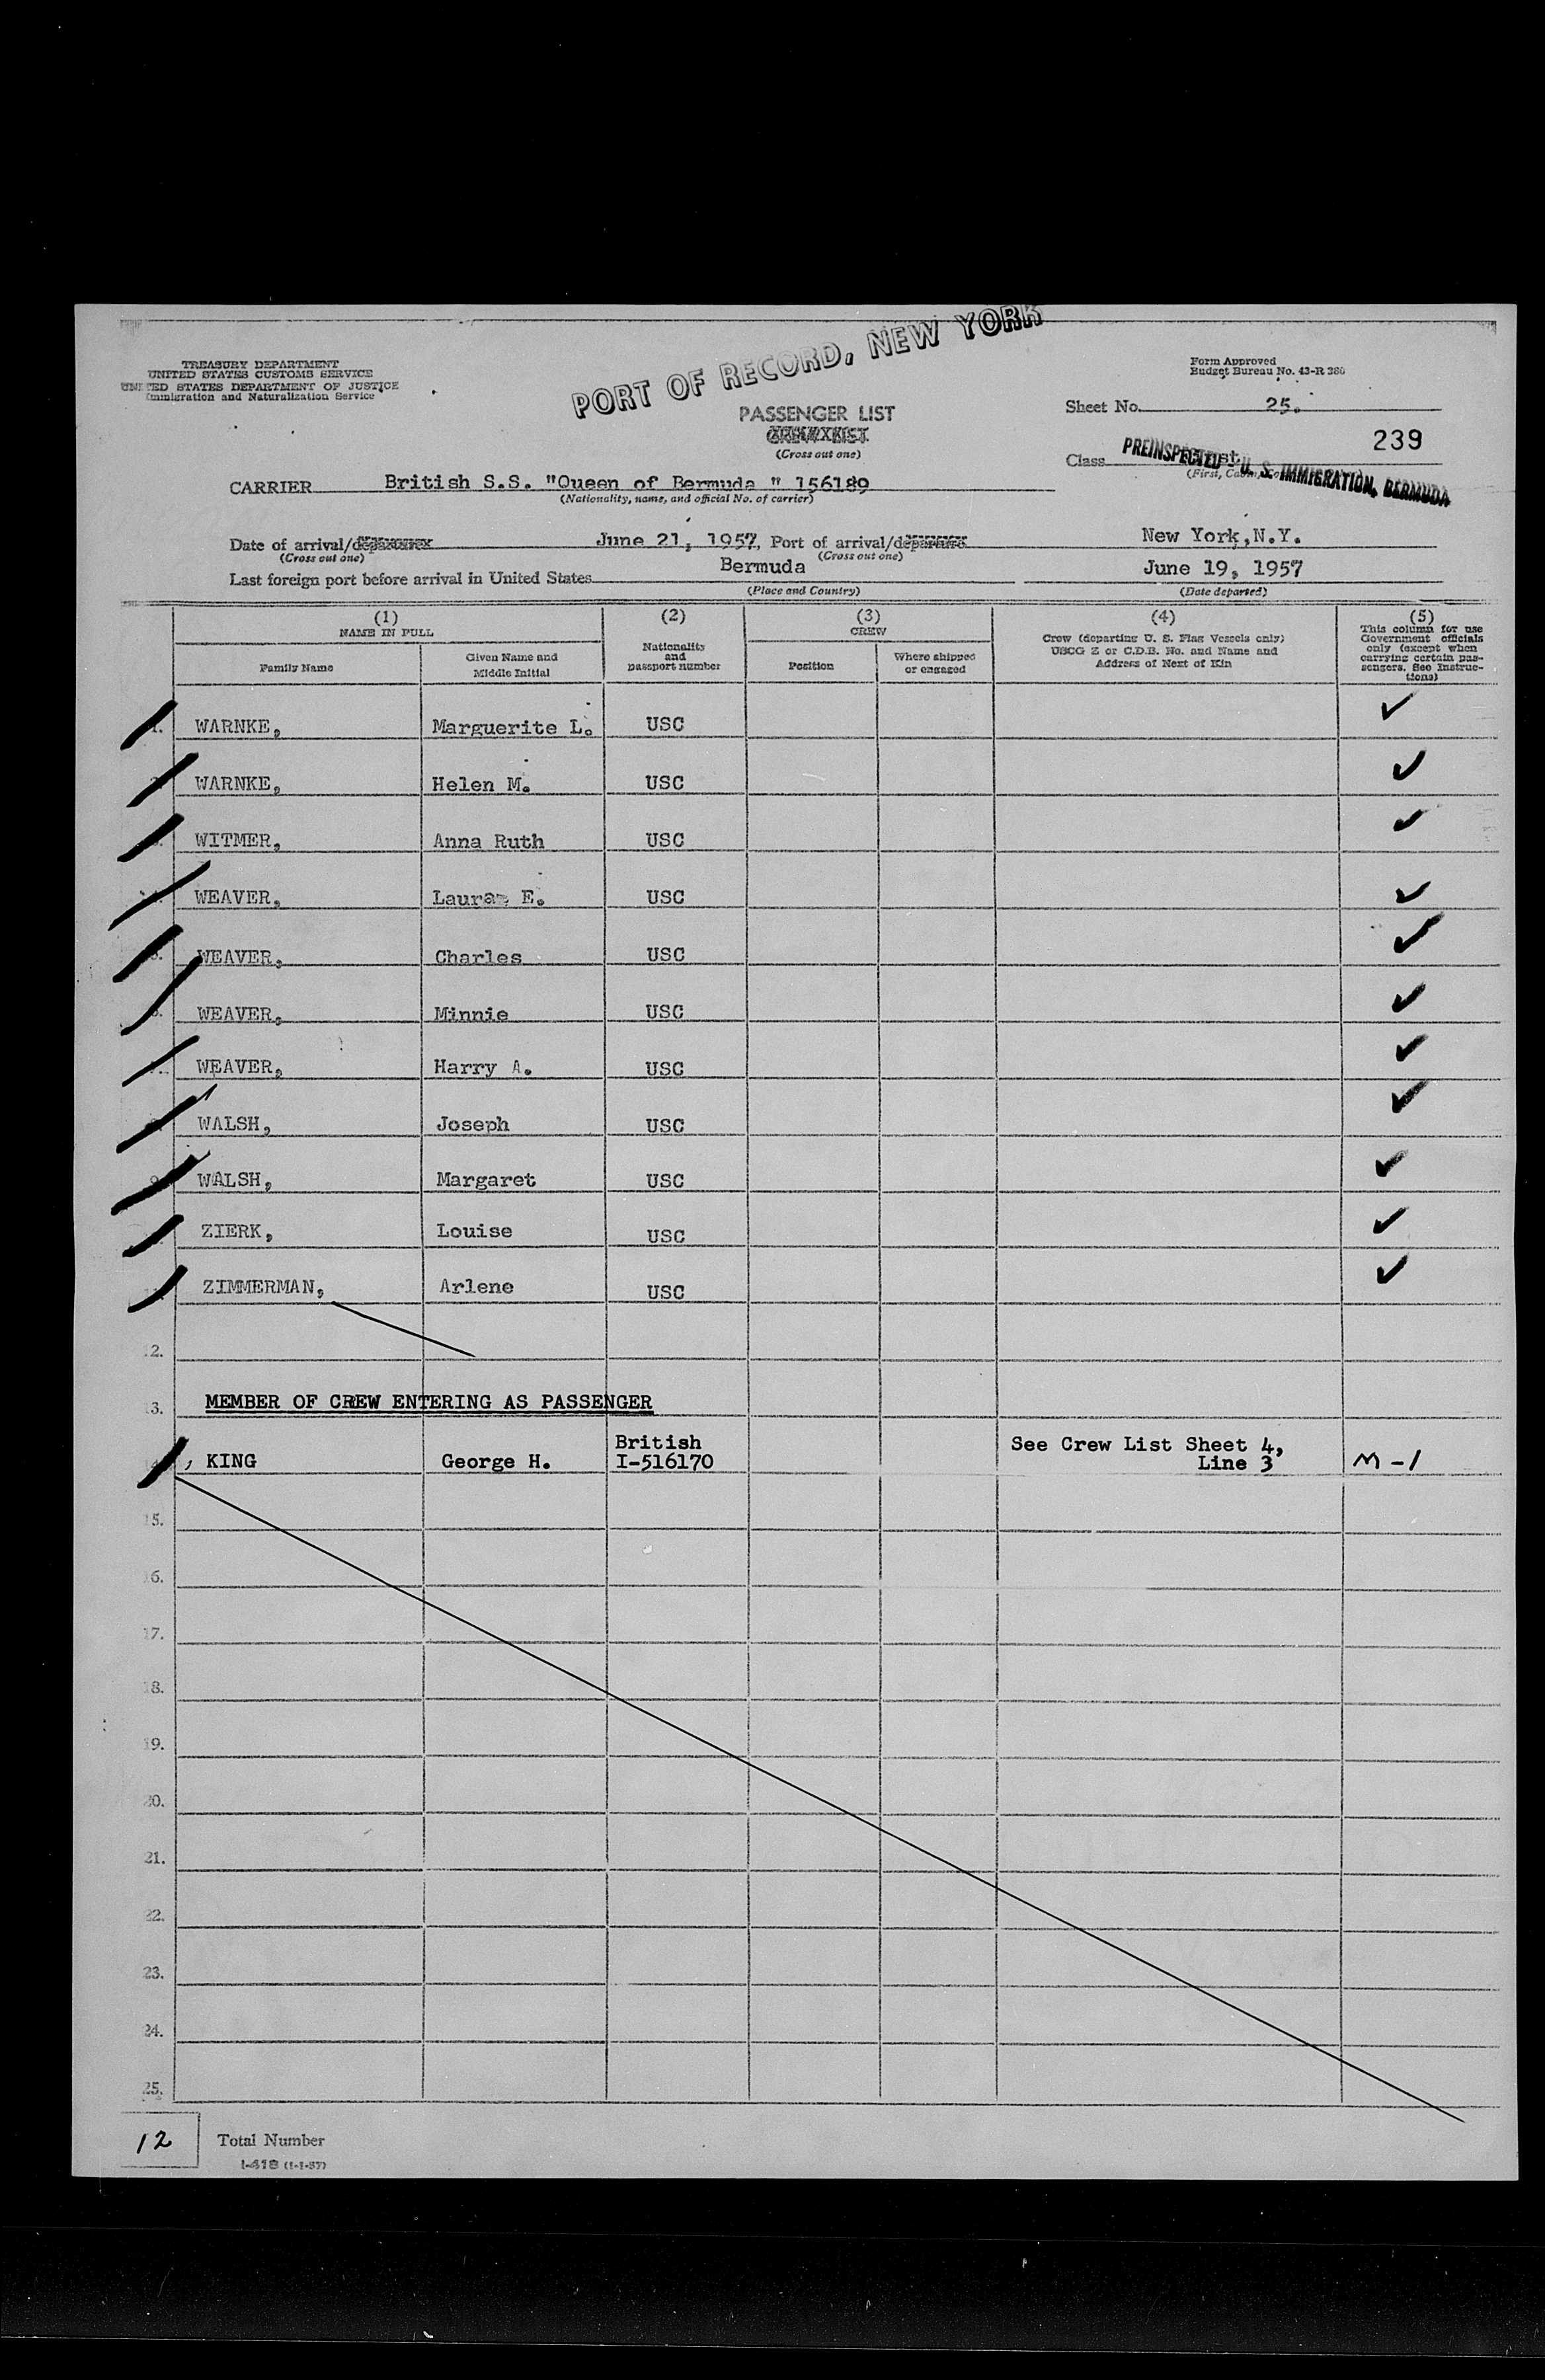 PORT OF RECORD, NEW YORK
TREASURY DEPARTMENT
UNITED STATES CUSTOMS SERVICE
UNITED STATES DEPARTMENT OF JUSTICE
Immigration and Naturalization Service
Form Approved
Budget Bureau No. 43-R 386
PASSENGER LIST
(Cross out one)
Sheet No. 25.
239
Class
PREINSPECTED - U. S. IMMIGRATION, BERMUDA
CARRIER British S.S. "Queen of Bermuda " 156189
(Nationality, name, and official No. of carrier)
Date of arrival/departure June 21, 1957, Port of arrival/departure New York,N.Y.
(Cross out one) (Cross out one)
Last foreign port before arrival in United States Bermuda June 19, 1957
(Place and Country) (Date departed)
(1) (2) (3) (4) (5)
NAME IN FULL
Family Name
Given Name and Middle Initial
Nationality and passport number
CREW
Position
Where shipped or engaged
Crew (departing U. S. Flag Vessels only)
USCG Z or C.D.B. No. and Name and
Address of Next of Kin
This column for use
Government officials
only (except when
carrying certain pas-
sengers. See Instruc-
tions)
WARNKE, Marguerite L. USC ✓
WARNKE, Helen M. USC ✓
WITMER, Anna Ruth USC ✓
WEAVER, Laura E. USC ✓
WEAVER, Charles USC ✓
WEAVER, Minnie USC ✓
WEAVER, Harry A. USC ✓
WALSH, Joseph USC ✓
WALSH, Margaret USC ✓
ZIERK, Louise USC ✓
ZIMMERMAN, Arlene USC ✓
12.
13. MEMBER OF CREW ENTERING AS PASSENGER
KING George H. British I-516170 See Crew List Sheet 4, Line 3 M-1
15.
16.
17.
18.
19.
20.
21.
22.
23.
24.
25.
12 Total Number
I-418 (1-1-57)